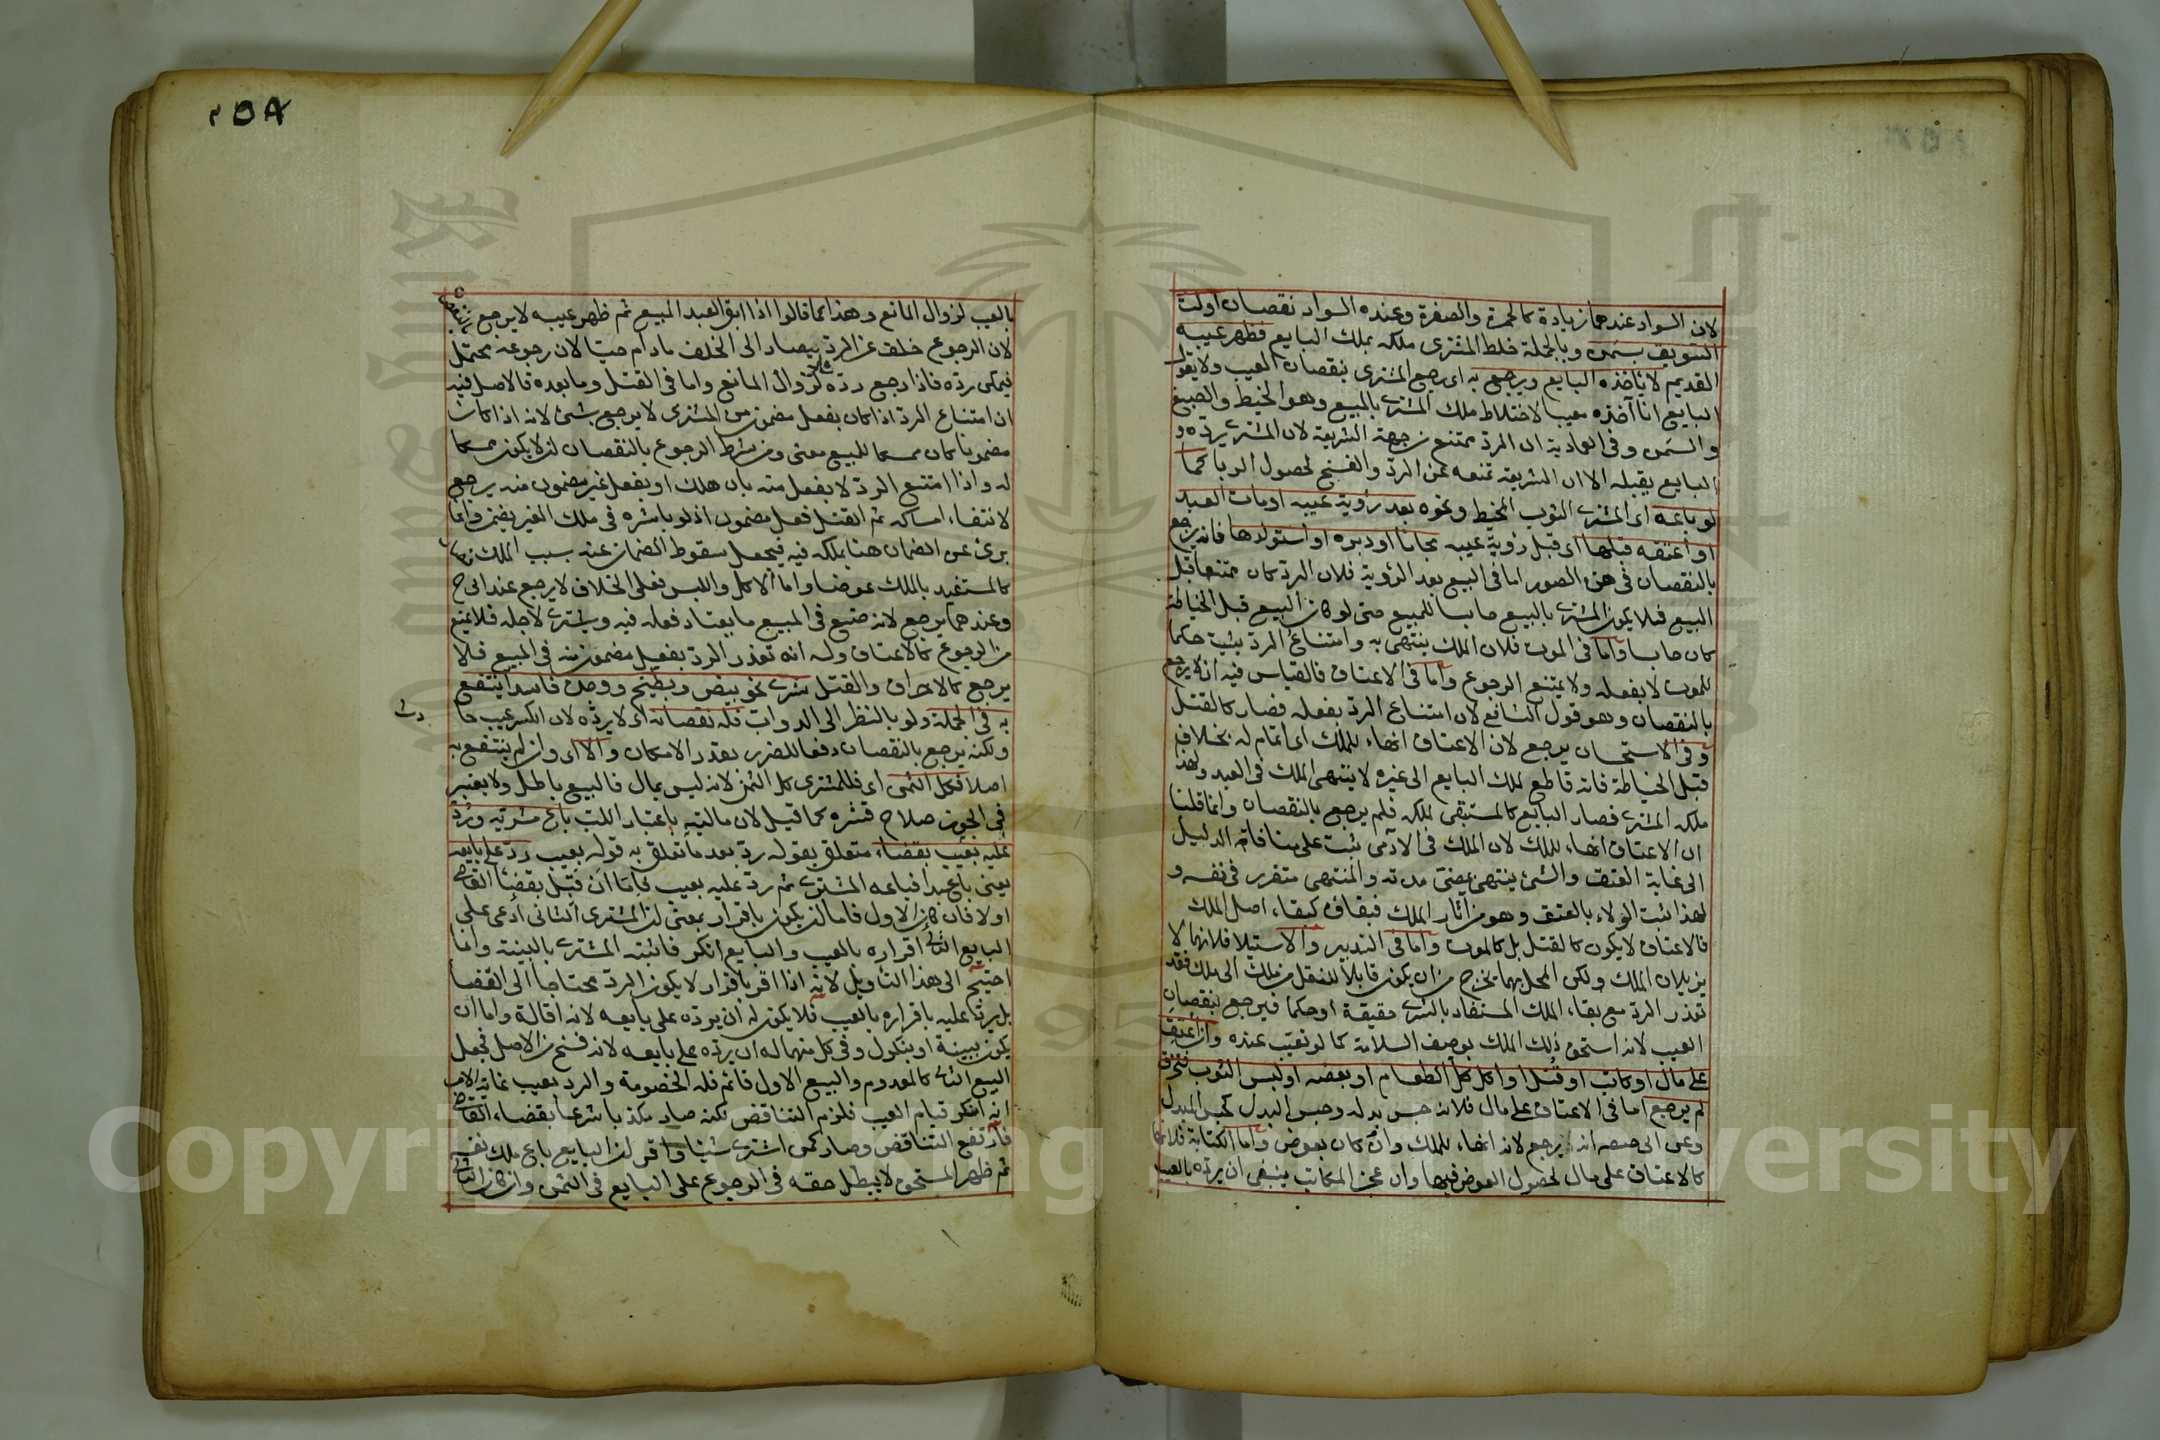 لان السواد عندهما زيادة كالحمرة والصفرة وعنده السواد نقصان او لت
السويق بسمن وبالجملة خلط المشترى ملكه بملك البايع فظهر عيبه
القديم لا ياخذه البايع ويرجع به اى يرجع المشترى بنقصان العيب ولا يقول
البايع انا آخذه معيبا لاختلاط ملك المشترى بالمبيع وهو الخيط والصبغ
والسمن وفى العمادية ان الرد ممتنع من جهة الشريعة لان المشترى يرده و
البايع يقبله الا ان الشريعة تمنعه عن الرد والفسخ لحصول الربا كما
لو باعه اى المشترى الثوب المخيط ونحوه بعد رؤية عيبه او مات العبد
او اعتقه قبلها اى قبل رؤية عيبه مجانا او دبره او استولدها فانه يرجع
بالنقصان فى هذه الصور اما فى البيع بعد الرؤية فلان الرد كان ممتنعا قبل
البيع فلا يكون المشترى بالبيع حابسا للمبيع حتى لو كان البيع قبل الخياطة
كان حابسا واما فى الموت فلان الملك ينتهى به وامتناع الرد يثبت حكما
للموت لا بفعله ولا يمتنع الرجوع واما فى الاعتاق فالقياس فيه انه لا يرجع
بالنقصان وهو قول الشافعى لان امتناع الرد بفعله فصار كالقتل
وفى الاستحسان يرجع لان الاعتاق انهاء للملك اى اتمام له بخلافه
قبل الخياطة فانه قاطع لملك البايع الى غيره لا ينتهى الملك فى العبد ولهذا
ملكه المشترى فصار البايع كالمستبقى لملكه فلم يرجع بالنقصان وانما قلنا
ان الاعتاق انهاء للملك لان الملك فى الآدمى يثبت على منافاة الدليل
الى غاية العتق والشئ ينتهى بمضى مدته والمنتهى متقرر فى نفسه و
لهذا يثبت الولاء بالعتق وهو من آثار الملك فبقاؤه كبقاء اصل الملك
فالاعتاق لا يكون كالقتل بل كالموت واما فى التدبير والاستيلاد فلانهما لا
يزيلان الملك ولكن المحل بهما يخرج من ان يكون قابلا للنقل من ملك الى ملك فقد
تعذر الرد مع بقاء الملك المستفاد بالشرى حقيقة او حكما فيرجع بنقصان
العيب لانه استحق ذلك الملك بوصف السلامة كما لو تعيب عنده وان اعتق
على مال او كاتب او قتل او اكل كل الطعام او بعضه او لبس الثوب فتخرق
لم يرجع اما فى الاعتاق على مال فلانه حبس بدله وحبس البدل كحبس المبدل
وعن ابى حنيفه انه يرجع لانه انهاء للملك وان كان بعوض واما الكتابة فلانها
كالاعتاق على مال لحصول العوض فيها وان عجز المكاتب ينبغى ان يرده بالعيب
٢٥٨
بالعيب لزوال المانع وهذا كما قالوا اذا ابق العبد المبيع ثم ظهر عيبه لا يرجع
لان الرجوع خلف عن الرد فيصار الى الخلف مادام حيا لان رجوعه محتمل
فيمكن رده فاذا رجع رده لزوال المانع واما فى القتل وما بعده فالاصل فيه
ان امتناع الرد اذا كان بفعل مضمون من المشترى لا يرجع بشئ لانه اذا كان
مضمونا كان ممسكا للمبيع معنى ومن شرط الرجوع بالنقصان ان لا يكون ممسكا
له واذا امتنع الرد لا بفعل منه بان هلك او بفعل غير مضمون منه يرجع
لانتفاء امساكه ثم القتل فعل مضمون اذ لو باشره فى ملك الغير يضمن وانما
برئ عن الضمان هنا بملكه فيه فيجعل سقوط الضمان عنه بسبب الملك
كالمستفيد بالملك عوضا واما الاكل واللبس فعلى الخلاف لا يرجع عند ابى ح
وعندهما يرجع لانه صنع فى المبيع ما يعتاد فعله فيه ويشترى لاجله فلا يمنع
من الرجوع كالاعتاق وله انه تعذر الرد بفعل مضمون منه فى المبيع فلا
يرجع كالاحراق والقتل شرى نحو بيض وبطيخ ووجده فاسدا ينتفع
به فى الجملة ولو بالنظر الى الدواب فله نقصانه اى لا يرده لان الكسر عيب حادث
ولكنه يرجع بالنقصان دفعا للضرر بقدر الامكان والا اى وان لم ينتفع به
اصلا فكل الثمن اى فللمشترى كل الثمن لانه ليس بمال فالبيع باطل ولا يعتبر
فى الجوز صلاح قشره كما قيل لان ماليته باعتبار اللب باع مشريه ورد
عليه بعيب بقضاء متعلق بقوله رد بعد ما تعلق به قوله بعيب رد على بايعه
يعنى باع عبدا فباعه المشترى ثم رد عليه بعيب فاما ان قبل بقضاء القاضى
او لا فان كان الاول فاما ان يكون باقرار بمعنى ان المشترى الثانى ادعى على
البايع الثانى اقراره بالعيب والبايع انكر فاثبته المشترى بالبينة وانما
احتيج الى هذا التاويل لانه اذا اقر باقرار لا يكون الرد محتاجا الى القضا
بل يرد عليه باقراره بالعيب فلا يكون له ان يرده على بايعه لانه اقالة واما ان
يكون ببينة او بنكول وفى كل منها له ان يرده على بايعه لانه فسخ من الاصل فجعل
البيع الثانى كالمعدوم والبيع الاول قائم فله الخصومة والرد بعيب غاية الامر
انه انكر قيام العيب فلزم التناقض لكنه صار مكذبا شرعا بقضاء القاضى
فارتفع التناقض وصار كمن اشترى شيئا واقر ان البايع باع ملك نفسه
ثم ظهر المستحق لا يبطل حقه فى الرجوع على البايع فى الثمن وان كان الثانى
Copyright © King Saud University